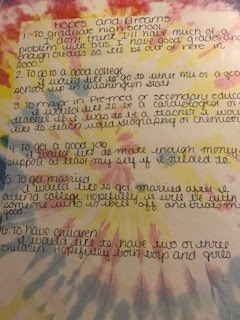 Hopes and Dreams
1. To graduate high school
I dont think I'll have much of a
problem with this. I have good grades and
enough credits so I'll be out of here in
2000!
2. To go to a good college
I would like to go to either MU or a good
school up in Washington State
3. To major in Pre-med or Secondary educa
I would like to be a cardiologist or a
teacher. If I was to be a teacher I would
like to teach world geography or
4. To get a good job
I would like to make enough money
support at least my self if needed to.
5. To get married
I would like to get married after I
attend college. Hopefully it will be with
someone who is well off and treats me
good.
6. To have children
I would like to have two or three
children. Hopefully both boys and girls